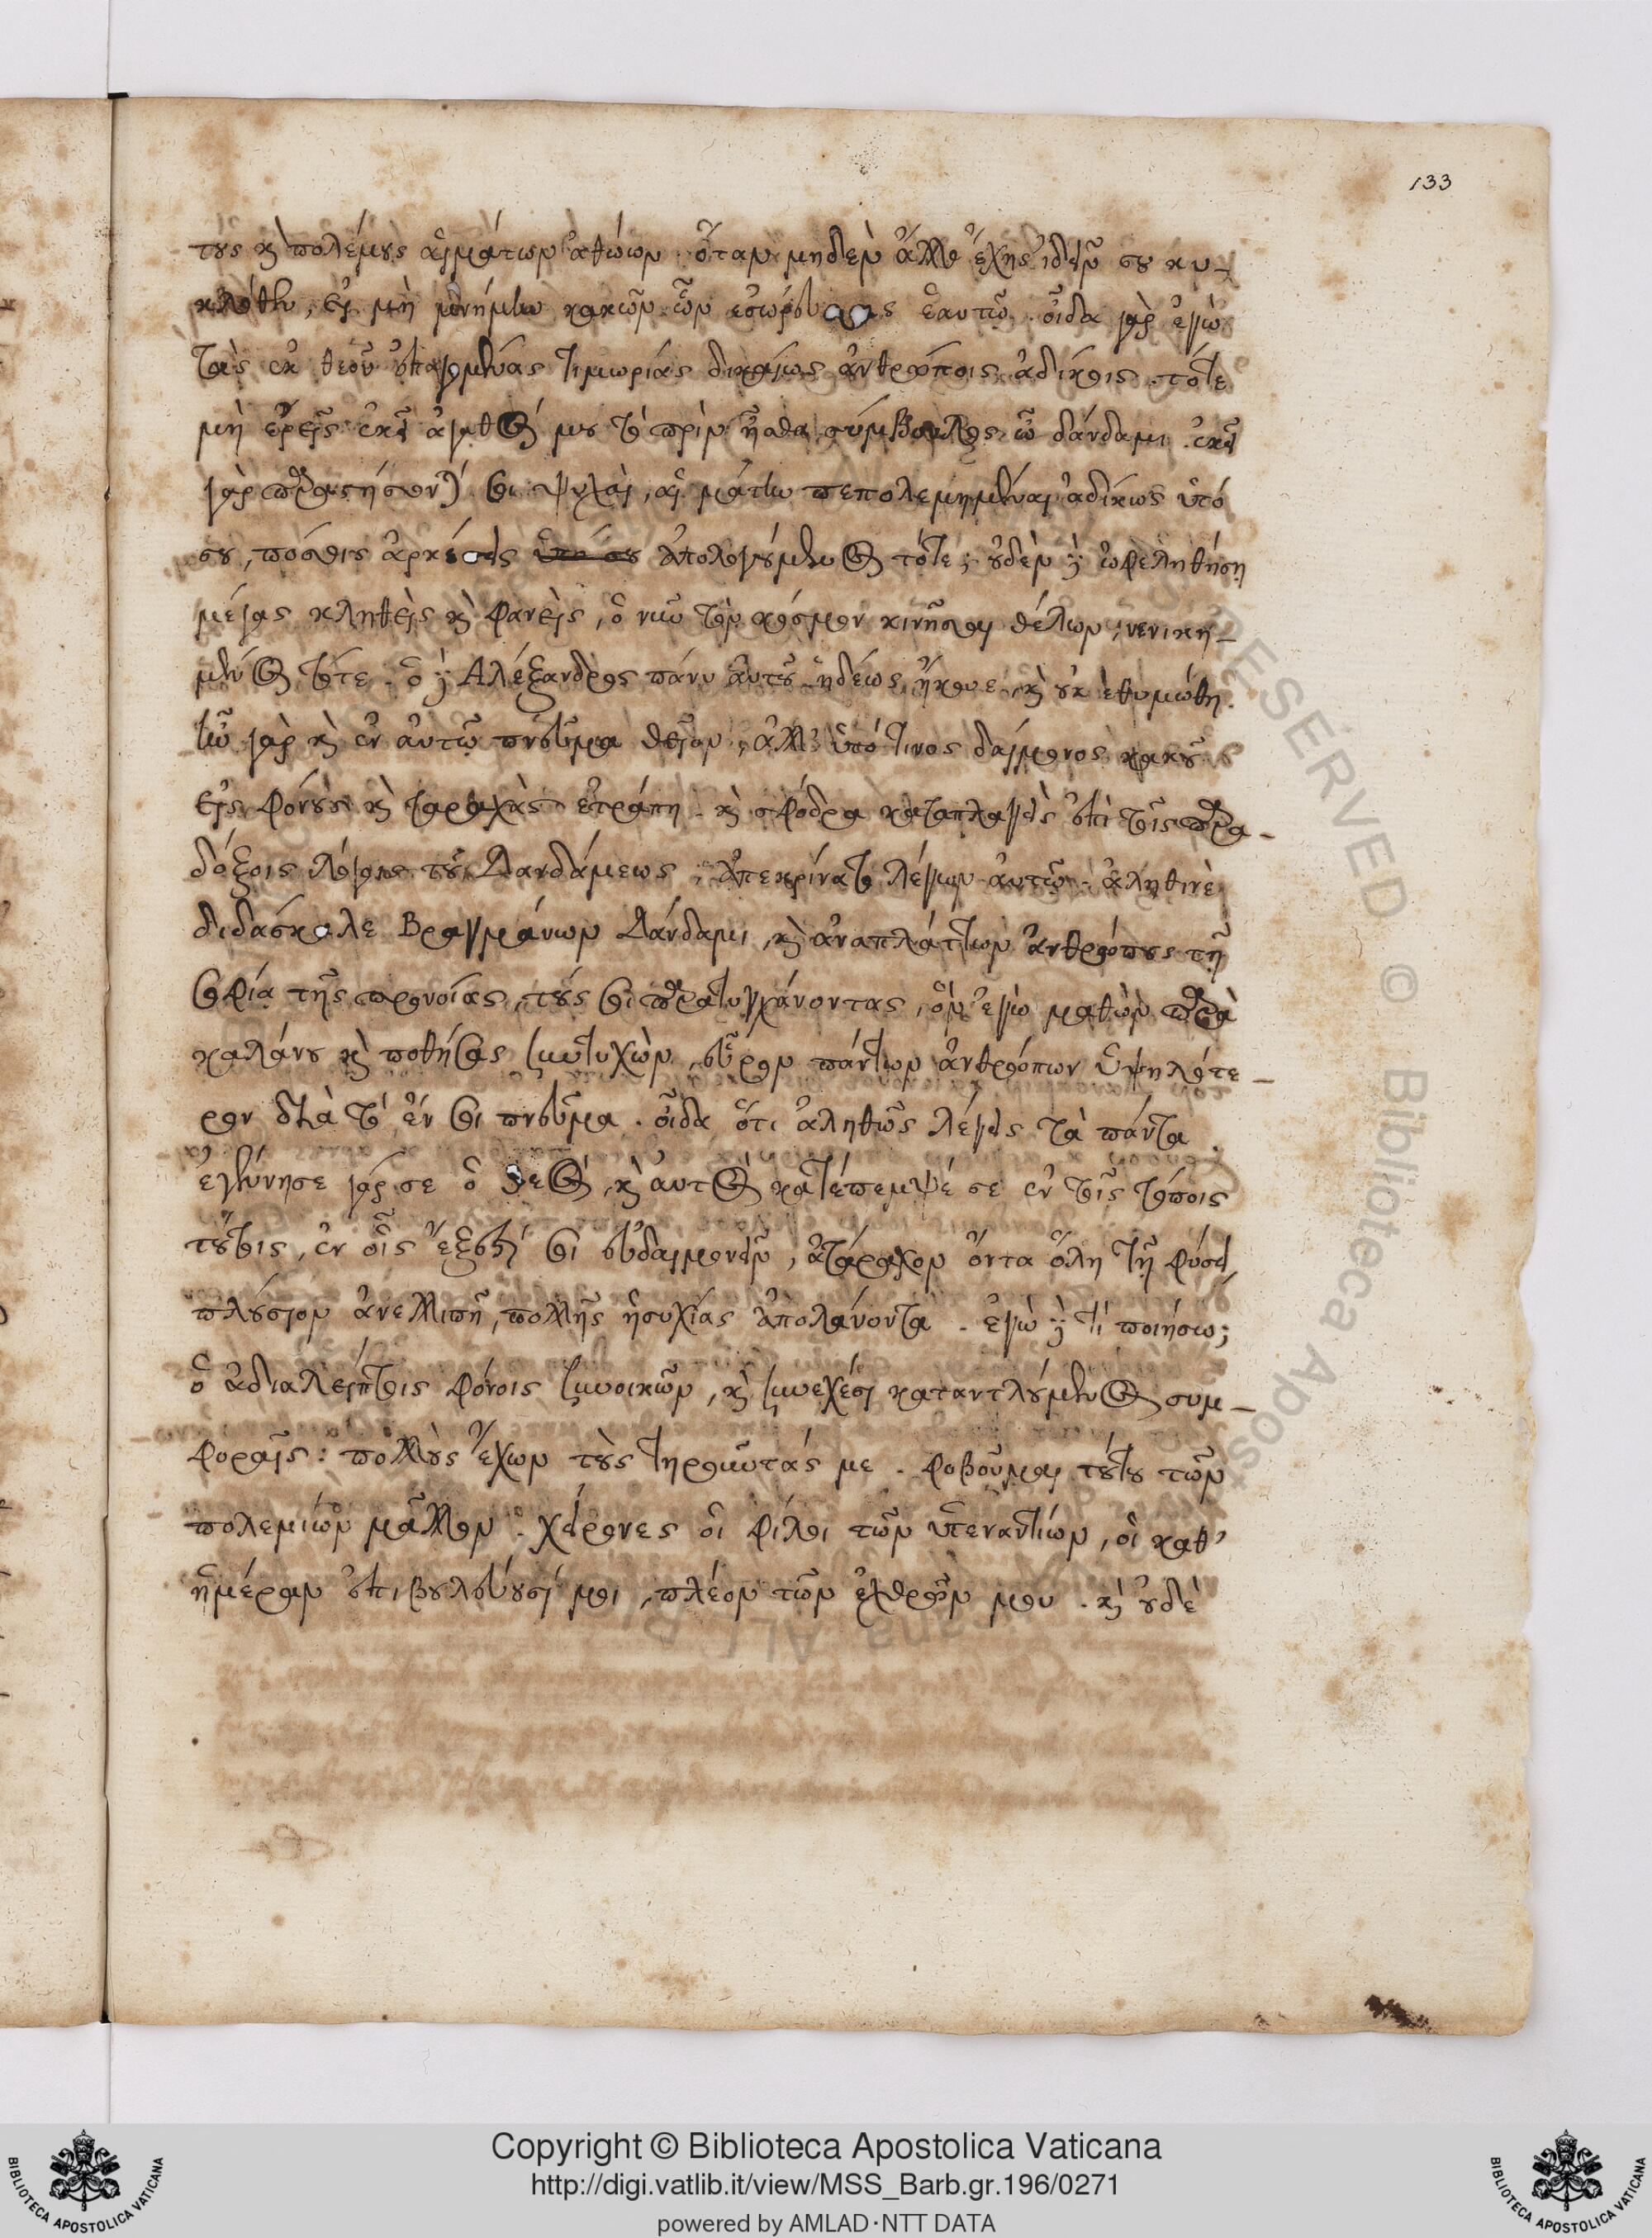 133
τους καὶ πολέμους αἱμάτων ἀθώων. ὅταν μηδὲν ἄλλο ἔχης ἰδεῖν σου κυ-
κλόθεν, εἰ μὴ μνήμην κακῶν ὧν ἐσώρευσας ἑαυτῷ. οἶδα γὰρ ἐγὼ
τὰς ἐκ θεοῦ ἐπαγομένας τιμωρίας δικαίως ἀνθρώποις ἀδίκοις. τότε
μὴ ἐρεῖς ἐκεῖ ἀγαθός μου τὸ πρὶν ἦσθα σύμβουλος ὦ δάνδαμι. ἐκεῖ
γὰρ παραστήσονταί σοι ψυχαὶ, αἳ μάτην πεπολεμημέναι ἀδίκως ὑπό
σου, πόσοις ἀρκέσεις ἀπολογούμενος τότε; οὐδὲν δὲ ὠφεληθήση
μέγας κληθεὶς καὶ φανεὶς, ὁ νῦν τὸν κόσμον κινῆσαι θέλων, νενικη-
μένος τότε. ὁ δὲ Ἀλέξανδρος πάνυ αὐτοῦ ἡδέως ἤκουε, καὶ οὐκ ἐθυμώθη.
ἦν γὰρ καὶ ἐν αὐτῷ πνεῦμα θεῖον, ἀλλ' ὑπό τινος δαίμονος κακοῦ
εἰς φόνους καὶ ταραχὰς ἐτράπη. καὶ σφόδρα καταπλαγεὶς ἐπὶ τοῖς παρα-
δόξοις λόγοις τοῦ Δανδάμεως, ἀπεκρίνατο λέγων αὐτῷ. ἀληθινὲ
διδάσκαλε Βραγμάνων Δάνδαμι, καὶ ἀναπλάττων ἀνθρώπους τῇ
σοφία τῆς προνοίας, τούς σοι παρατυγχάνοντας, ὃν ἐγὼ μαθὼν παρὰ
καλάνου καὶ ποθήσας συντυχὼν, εὗρον πάντων ἀνθρώπων ὑψηλότε-
ρον διὰ τό ἐν σοι πνεῦμα. οἶδα ὅτι ἀληθῶς λέγεις τὰ πάντα.
ἐγέννησε γάρ σε ὁ θεός, καὶ αὐτὸς κατέπεμψέ σε ἐν τοῖς τόποις
τούτοις, ἐν οἷς ἔξεστί σοι εὐδαιμονεῖν, ἀτάραχον ὄντα ὅλη τῇ φύσει,
πλούσιον ἀνελλιπῆ, πολλῆς ἡσυχίας ἀπολαύοντα. ἐγὼ δὲ τί ποιήσω;
ὁ ἀδιαλείπτοις φόνοις συνοικῶν, καὶ συνεχέσι καταντλούμενος συμ-
φοραῖς: πολλοὺς ἔχων τοὺς τηροῦντάς με. φοβοῦμαι τούτου τῶν
πολεμίων μᾶλλον. χείρονες οἱ φίλοι τῶν ὑπεναντίων, οἱ καθ'
ἡμέραν ἐπιβουλεύουσί μοι, πλέον τῶν ἐχθρῶν μου. καὶ οὐδὲ
Copyright © Biblioteca Apostolica Vaticana
http://digi.vatlib.it/view/MSS_Barb.gr.196/0271
powered by AMLAD·NTT DATA
BIBLIOTECA APOSTOLICA VATICANA
BIBLIOTECA APOSTOLICA VATICANA